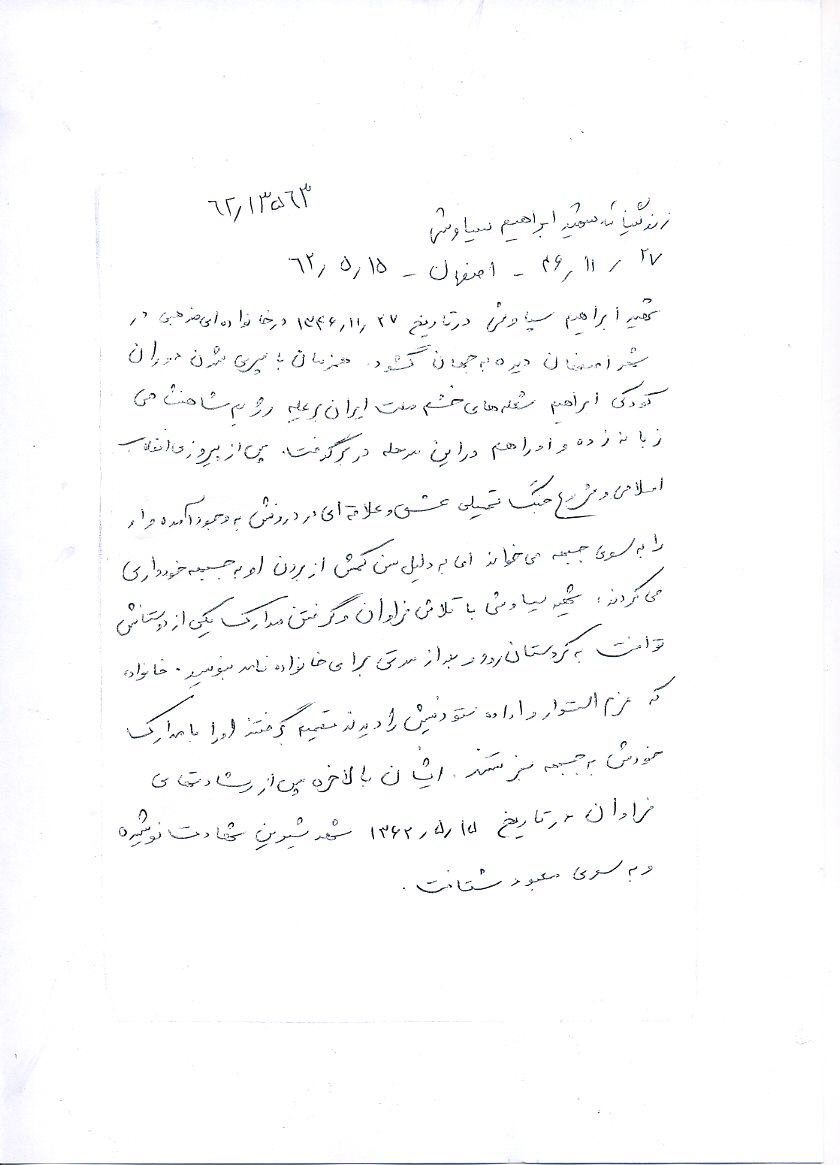 ۶۲٫۱۳۵۶۳
زندگینامه شهید ابراهیم سیاوشی
۲۷ / ۱۱ / ۴۶ - اصفهان - ۶۲/۵/۱۵
شهید ابراهیم سیاوشی در تاریخ ۲۷ / ۱۱ / ۱۳۴۶ در خانواده ای مذهبی در
شهر اصفهان دیده به جهان گشود. همزمان با سپری شدن دوران
کودکی ابراهیم شعله های خشم ملت ایران بر علیه رژیم شاهنشاهی
زبانه زده و او را هم در این مرحله در بر گرفت. پس از پیروزی انقلاب
اسلامی و شروع جنگ تحمیلی عشق و علاقه ای در درونش به وجود آمده و او
را به سوی جبهه می خواند اما به دلیل سن کمش از بردن او به جبهه خودداری
می کردند، شهید سیاوشی با تلاش فراوان و گرفتن مدارک یکی از دوستانش
توانست به کردستان رود و بعد از مدتی برای خانواده نامه بنویسد. خانواده
که عزم استوار و اراده ستودنیش را دیدند تصمیم گرفتند او را با مدارک
خودش به جبهه بفرستند. ایشان بالاخره پس از رشادتهای
فراوان در تاریخ ۱۵ / ۵ / ۱۳۶۲ شهد شیرین شهادت نوشیده
و به سوی معبود شتافت.